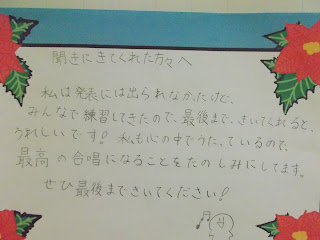 聞きにきてくれた方々へ
私は発表には出られなかたけど、
みんなで練習してきたので、最後まで、きいてくれると、
うれしいです! 私も心の中でうたっているので、
最高の合唱になることをたのしみにしてます。
ぜひ最後まできいてください!